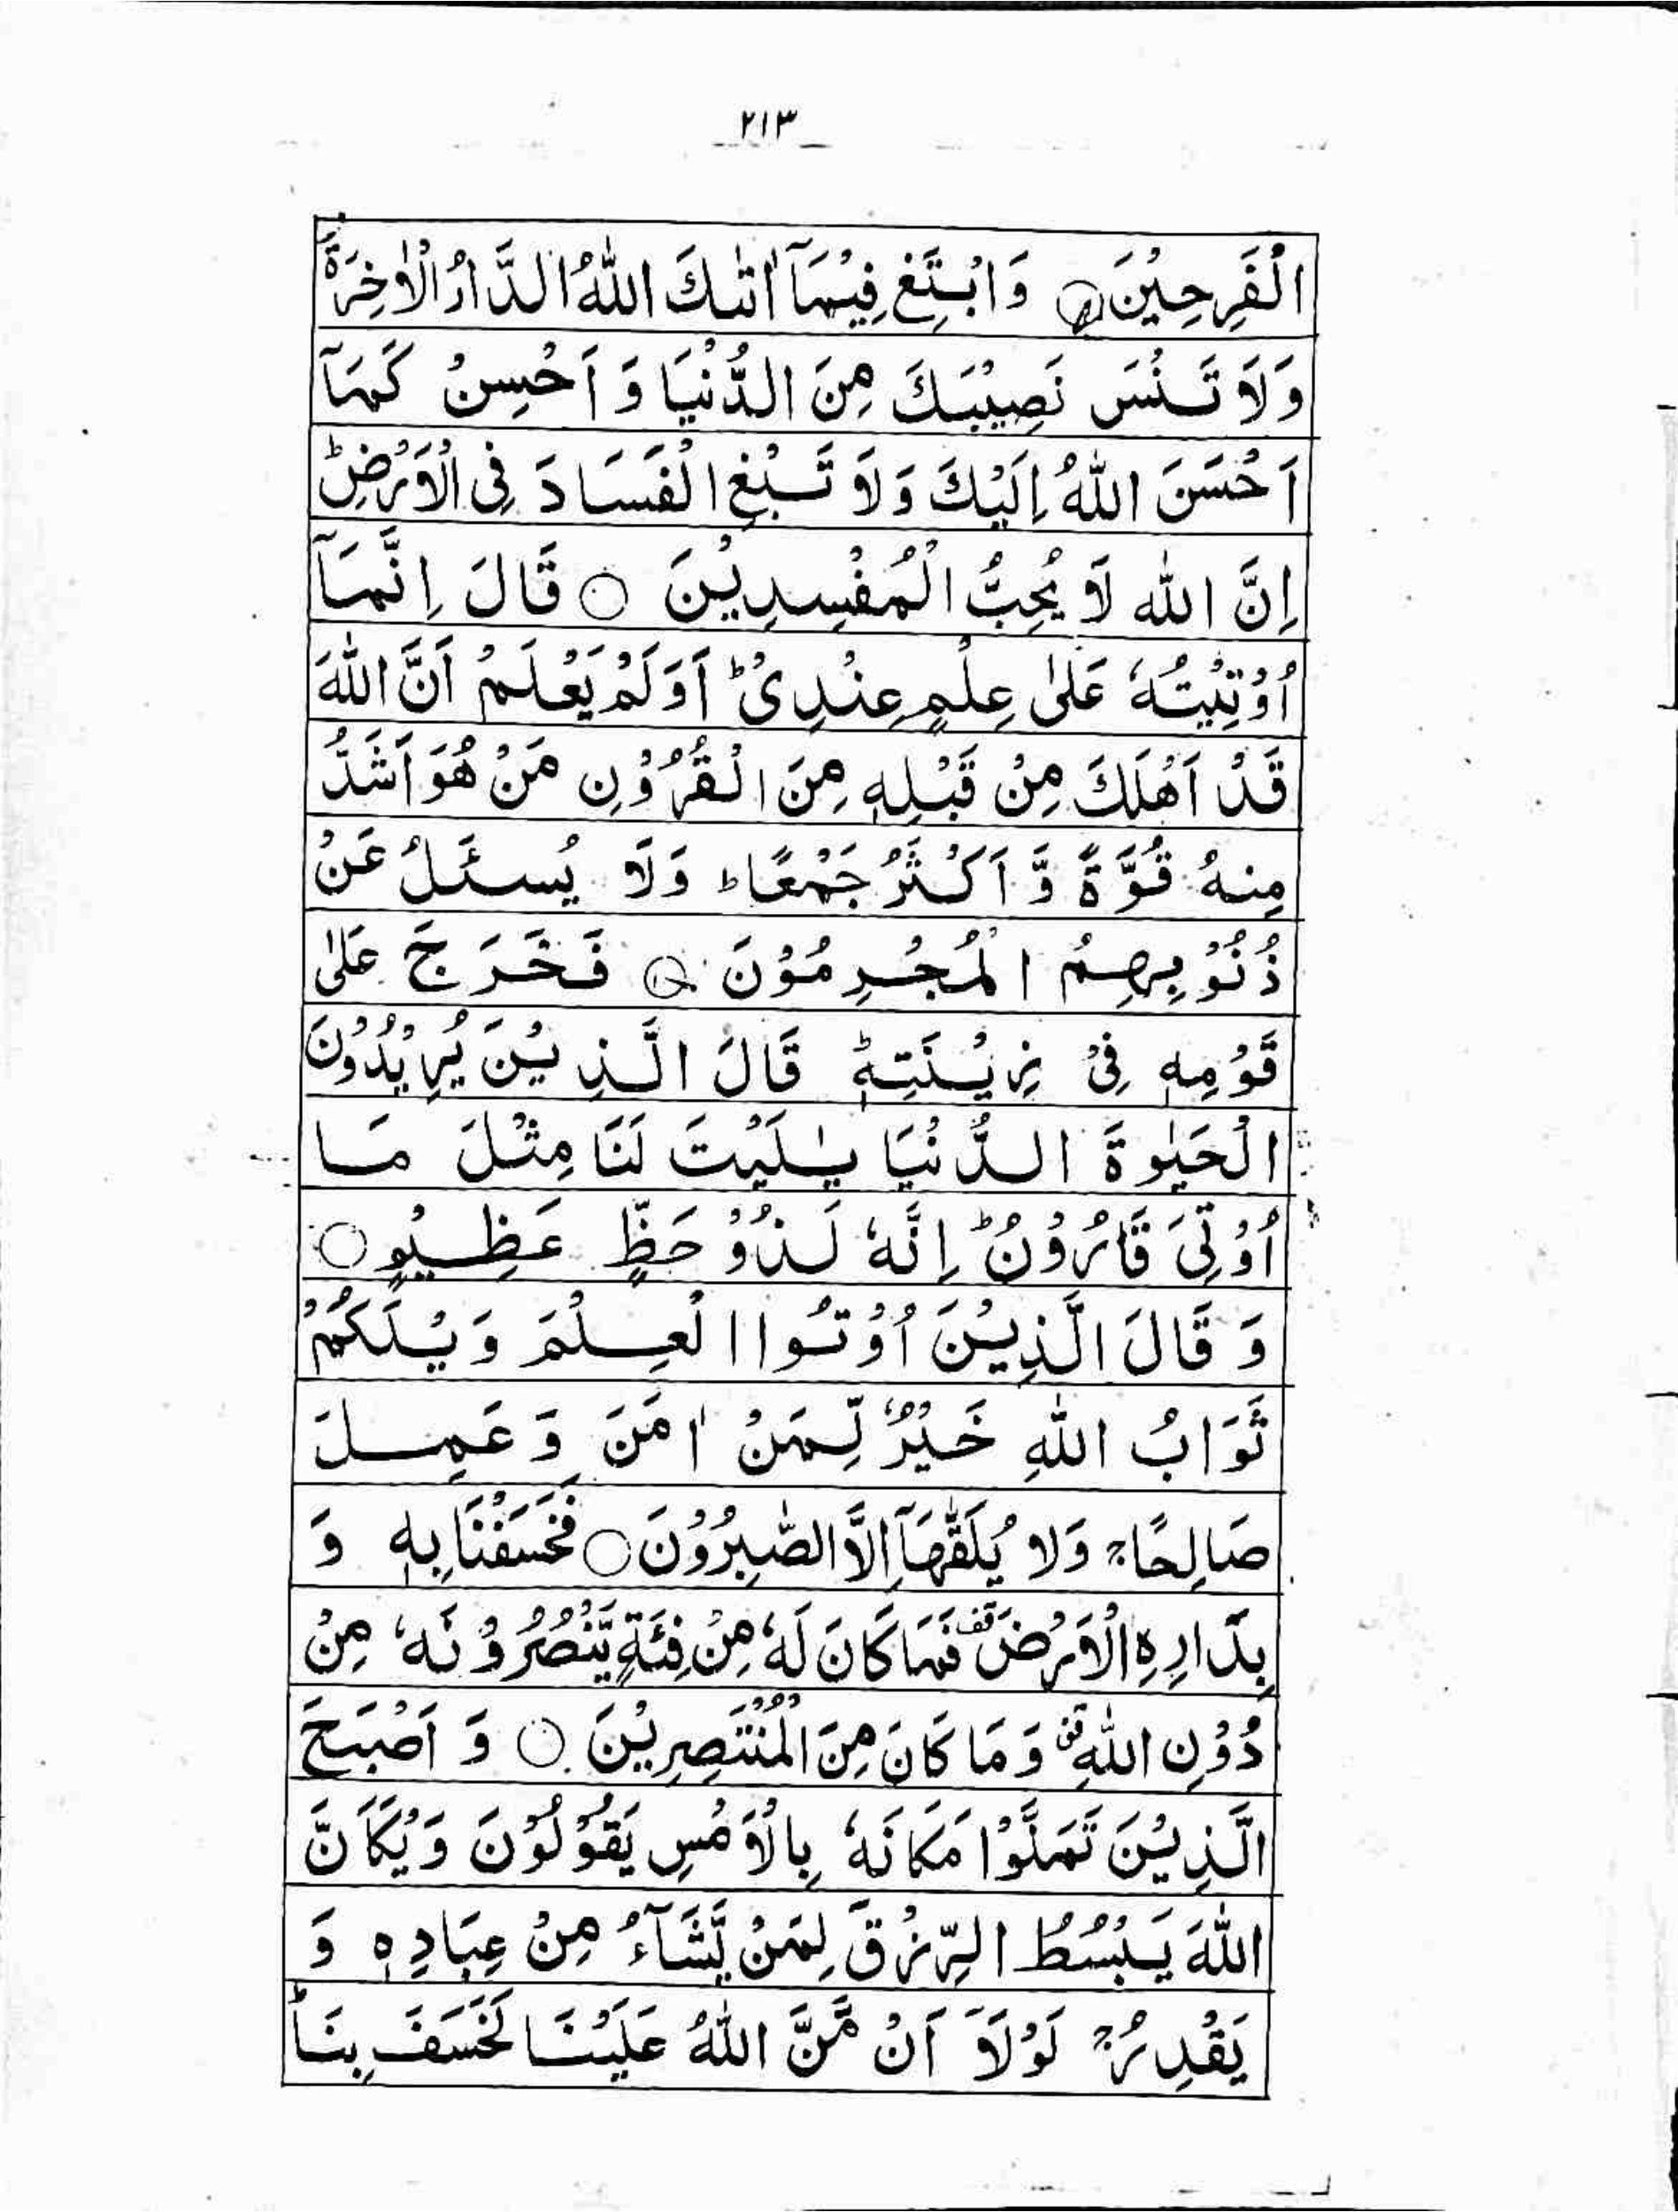 ٢١٣
الْفَرِحِيْنَ ○ وَابْتَغِ فِيْمَآ اٰتٰىكَ اللّٰهُ الدَّارُ الْاٰخِرَةَ
وَلَا تَنْسَ نَصِيْبَكَ مِنَ الدُّنْيَا وَ اَحْسِنْ كَمَآ
اَحْسَنَ اللّٰهُ اِلَيْكَ وَلَا تَبْغِ الْفَسَادَ فِى الْاَرْضِ ؕ
اِنَّ اللّٰه لَا يُحِبُّ الْمُفْسِدِيْنَ ○ قَالَ اِنَّمَآ
اُوْتِيْتُهٗ عَلٰى عِلْمٍ عِنْدِىْ ؕ اَوَلَمْ يَعْلَمْ اَنَّ اللّٰهَ
قَدْ اَهْلَكَ مِنْ قَبْلِهٖ مِنَ الْقُرُوْنِ مَنْ هُوَ اَشَدُّ
مِنهُ قُوَّةً وَّ اَكْثَرُ جَمْعًا ؕ وَلَا يُسئَلُ عَنْ
ذُنُوْبِهِمُ الْمُجْرِمُوْنَ ○ فَخَرَجَ عَلٰى
قَوْمِهٖ فِىْ زِيْنَتِهٖ ؕ قَالَ الَّذِيْنَ يُرِيْدُوْنَ
الْحَيٰوةَ الدُّنْيَا يٰلَيْتَ لَنَا مِثْلَ مَا
اُوْتِىَ قَارُوْنُ ؕ اِنَّهٗ لَذُوْ حَظٍّ عَظِيْمٍ ○
وَ قَالَ الَّذِيْنَ اُوْتُوا الْعِلْمَ وَيْلَكُمْ
ثَوَابُ اللّٰهِ خَيْرٌ لِّمَنْ اٰمَنَ وَ عَمِلَ
صَالِحًا ۚ وَلا يُلَقّٰهَآ اِلَّا الصّٰبِرُوْنَ ○ فَخَسَفْنَا بِهٖ وَ
بِدَارِهِ الْاَرْضَ ۟قف فَمَا كَانَ لَهٗ مِنْ فِئَةٍ يَّنْصُرُوْنَهٗ مِنْ
دُوْنِ اللّٰهِ ق وَ مَا كَانَ مِنَ الْمُنْتَصِرِيْنَ ○ وَ اَصْبَحَ
الَّذِيْنَ تَمَنَّوْا مَكَانَهٗ بِالْاَمْسِ يَقُوْلُوْنَ وَيْكَاَنَّ
اللّٰهَ يَبْسُطُ الرِّزْقَ لِمَنْ يَّشَآءُ مِنْ عِبَادِهٖ وَ
يَقْدِرُ ۚ لَوْلَآ اَنْ مَّنَّ اللّٰهُ عَلَيْنَا لَخَسَفَ بِنَا ؕ